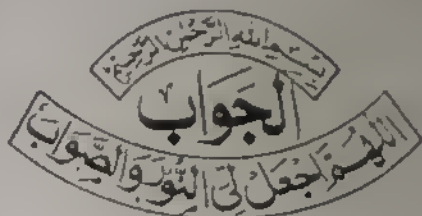 بِسْمِ اللهِ الرَّحْمٰنِ الرَّحِيْمِ
اَلجَوَابُ
اَللّٰهُمَّ اجْعَلْ لِيَ النُّوْرَ وَالصَّوَابَ